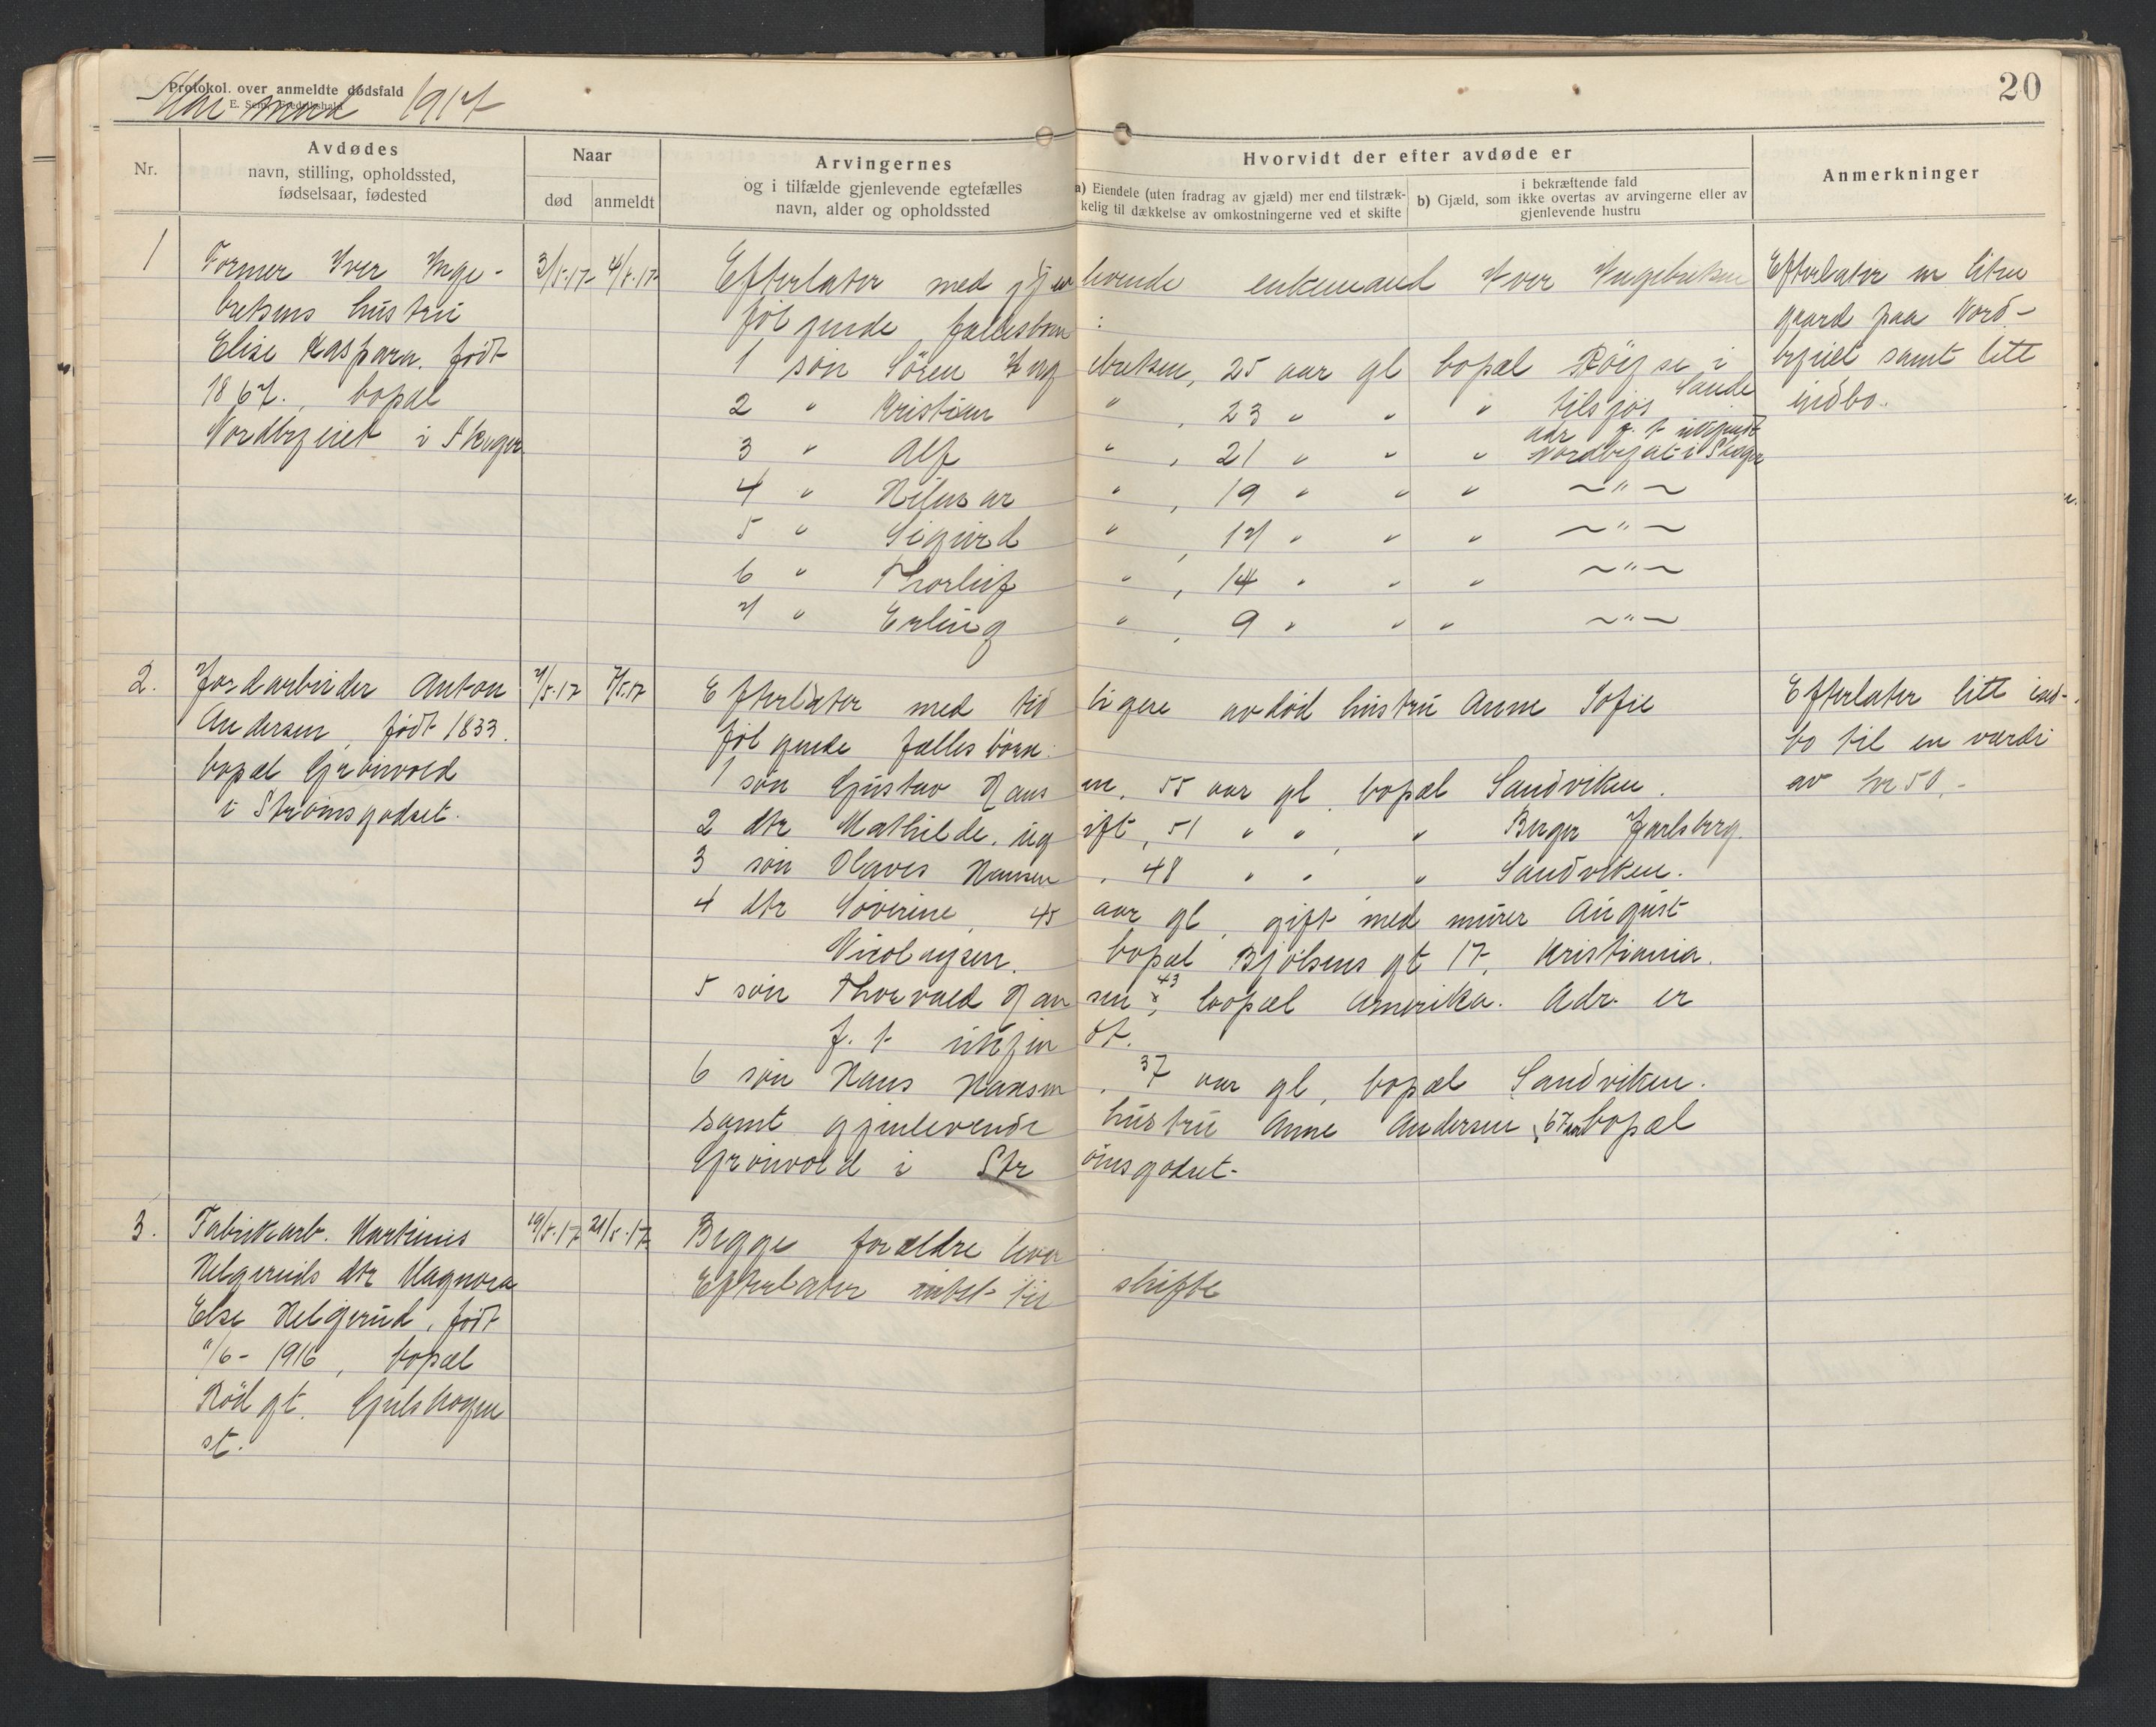 Protokol. over anmeldte dødsfald
Mai maaned 1917
20
Nr.
Avdødes
navn, stilling, opholdssted,
fødselsaar, fødested
Naar
død
anmeldt
Arvingernes
og i tilfælde gjenlevende egtefælles
navn, alder og opholdssted
Hvorvidt der efter avdøde er
a) Eiendele (uten fradrag av gjæld) mer end tilstræk-
kelig til dækkelse av omkostningerne ved et skifte
i bekræftende fald
b) Gjæld, som ikke overtas av arvingerne eller av
gjenlevende hustru
Anmerkninger
1
Former Iver Inge-
bretsens hustru
Elise Kaspara. født
1867., bopæl
Nordbyeiet i Skoger
3/5.17
4/5.17
Efterlater med gjenlevende enkemand Iver Ingebretsen
følgende fællesbørn:
1 søn Sören Ingebretsen, 25 aar gl bopæl Röysi i Sande
2 " Kristian " , 23 " " " tilsjös
adr f. t. ukjendt
3 " Alf " , 21 " " " Nordbyeiet i Skoger
4 " Hilmar " , 19 " " " ~"~
5 " Sigurd " , 17 " " " ~"~
6 " Thorleif " , 14 " " " ~"~
7 " Erling " , 9 " " " ~"~
Efterlater en liten
gaard paa Nord-
byeiet samt litt
indbo.
2.
Jordarbeider Anton
Andersen, født 1833.
bopæl Grönvold
i Strömsgodset.
7/5.17
7/5.17
Efterlater med tidligere avdöd hustru Anne Sofie
følgende fællesbörn:
1 sön Gustav Hansen, 55 aar gl, bopæl Sandviken.
2 dtr Mathilde, ugift, 51 " " , " Berger Jarlsberg.
3 sön Olaves Hansen, 48 " " " Sandviken.
4 dtr Söverine, 45 aar gl, gift med murer August
Nicolaysen. bopæl Bjölsens gt 17, Kristiania.
5 sön Thorvald Hansen 43, bopæl Amerika. Adr. er
f. t. ukjendt.
6 sön Hans Hansen, 37 aar gl, bopæl Sandviken.
samt gjenlevende hustru Anne Andersen, 67 aar bopæl
Grönvold i Strömsgodset.
Efterlater litt ind-
bo til en værdi
av kr 50,-
3.
Fabrikarb. Martinius
Helgeruds dtr Magnora
Else Helgerud, født
11/6- 1916, bopæl
Röd gt. Gulskogen
st.
19/5.17
21/5.17
Begge forældre lever
Efterlater intet til skifte